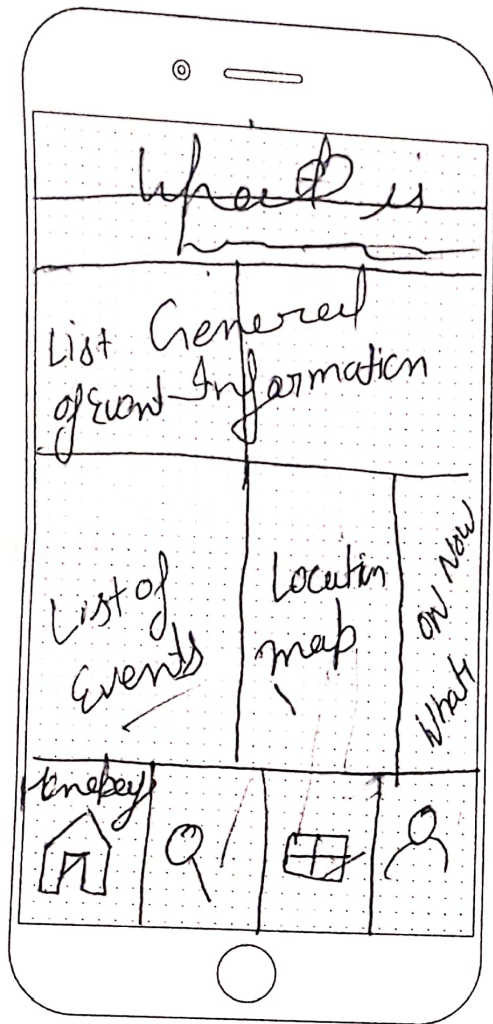 What is
List General
of Event Information
List of
Events
Location
map
What's
on Now